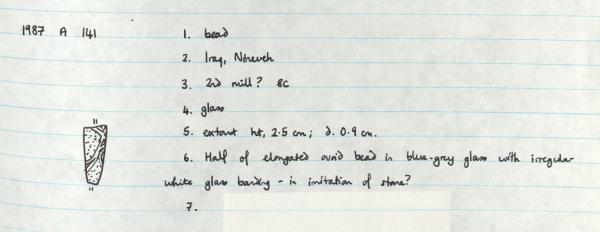 1987 A 141
1. bead
2. Iraq, Nineveh
3. 2nd mill? BC
4. glass
5. extant ht, 2.5 cm; d. 0.9 cm.
6. Half of elongated ovoid bead in blue-grey glass with irregular
white glass banding - in imitation of stone?
7.